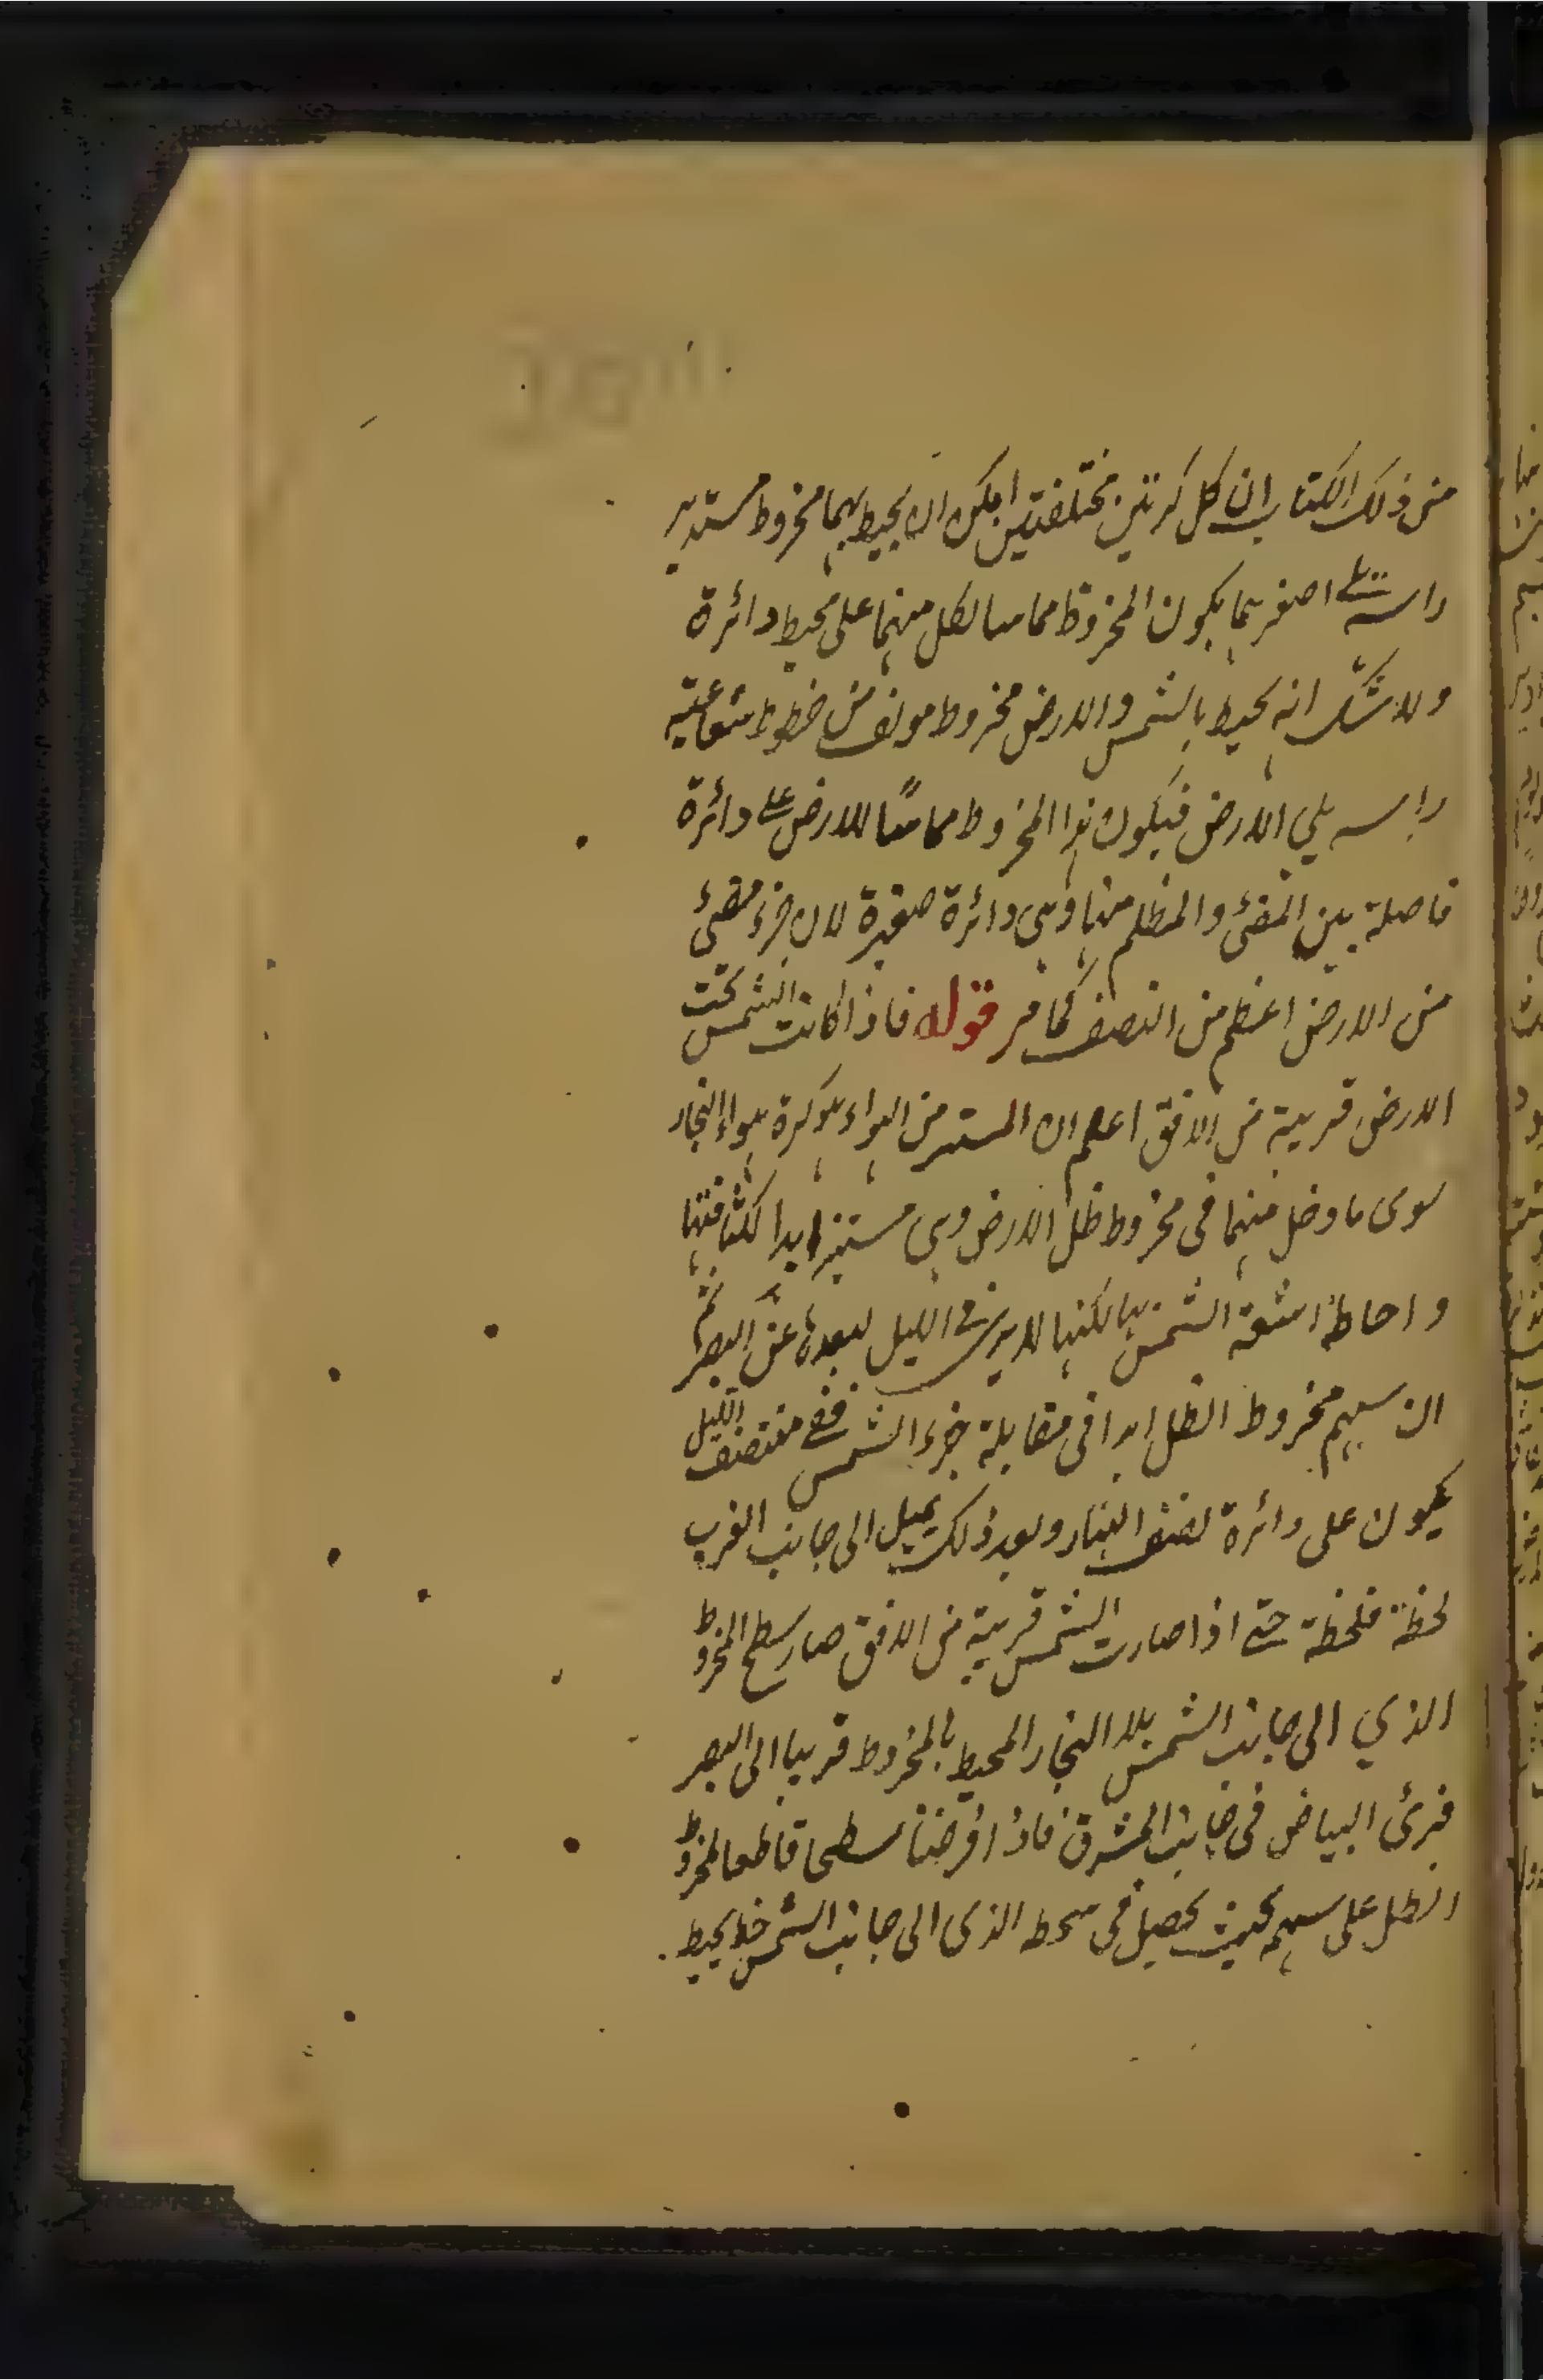 من ذلك الكتاب ان كل كرتين مختلفتين امكن ان يحيط بهما مخروط مستدير
راسه يلي اصغرهما يكون المخروط مماسا لكل منهما على محيط دائرة
ولا شك انه يحيط بالشمس والارض مخروط مولف من خطوط شعاعية
راسه يلي الارض فيكون هذا المخروط مماسًا للارض على دائرة
فاصلة بين المضئ والمظلم منها وهى دائرة صغيرة لان جزء مضئ
من الارض اعظم من النصف كما مر قوله فاذا كانت الشمس تحت
الارض قريبة من الافق اعلم ان المستنير من الهواء هو كرة هواء البخار
سوى ما دخل منهما فى مخروط ظل الارض وهى مستنيرة ابدا لكثافتها
واحاطة اشعة الشمس بها لكنها لا يرى فى الليل لبعدها عن البصر ثم
ان سهم مخروط الظل ابدا فى مقابلة جزء الشمس ففى منتصف الليل
يكون على دائرة نصف النهار وبعد ذلك يميل الى جانب الغرب
لحظة فلحظة حتى اذا صارت الشمس قريبة من الافق صار سطح المخروط
الذي الى جانب الشمس بلا البخار المحيط بالمخروط قريبا الى البصر
فيرئ البياض فى جانب المشرق فاذا فرضنا سطحا قاطعا لمخروط
الظل على سهمه بحيث يحصل فى سطحه الذى الى جانب الشمس خط يحيط